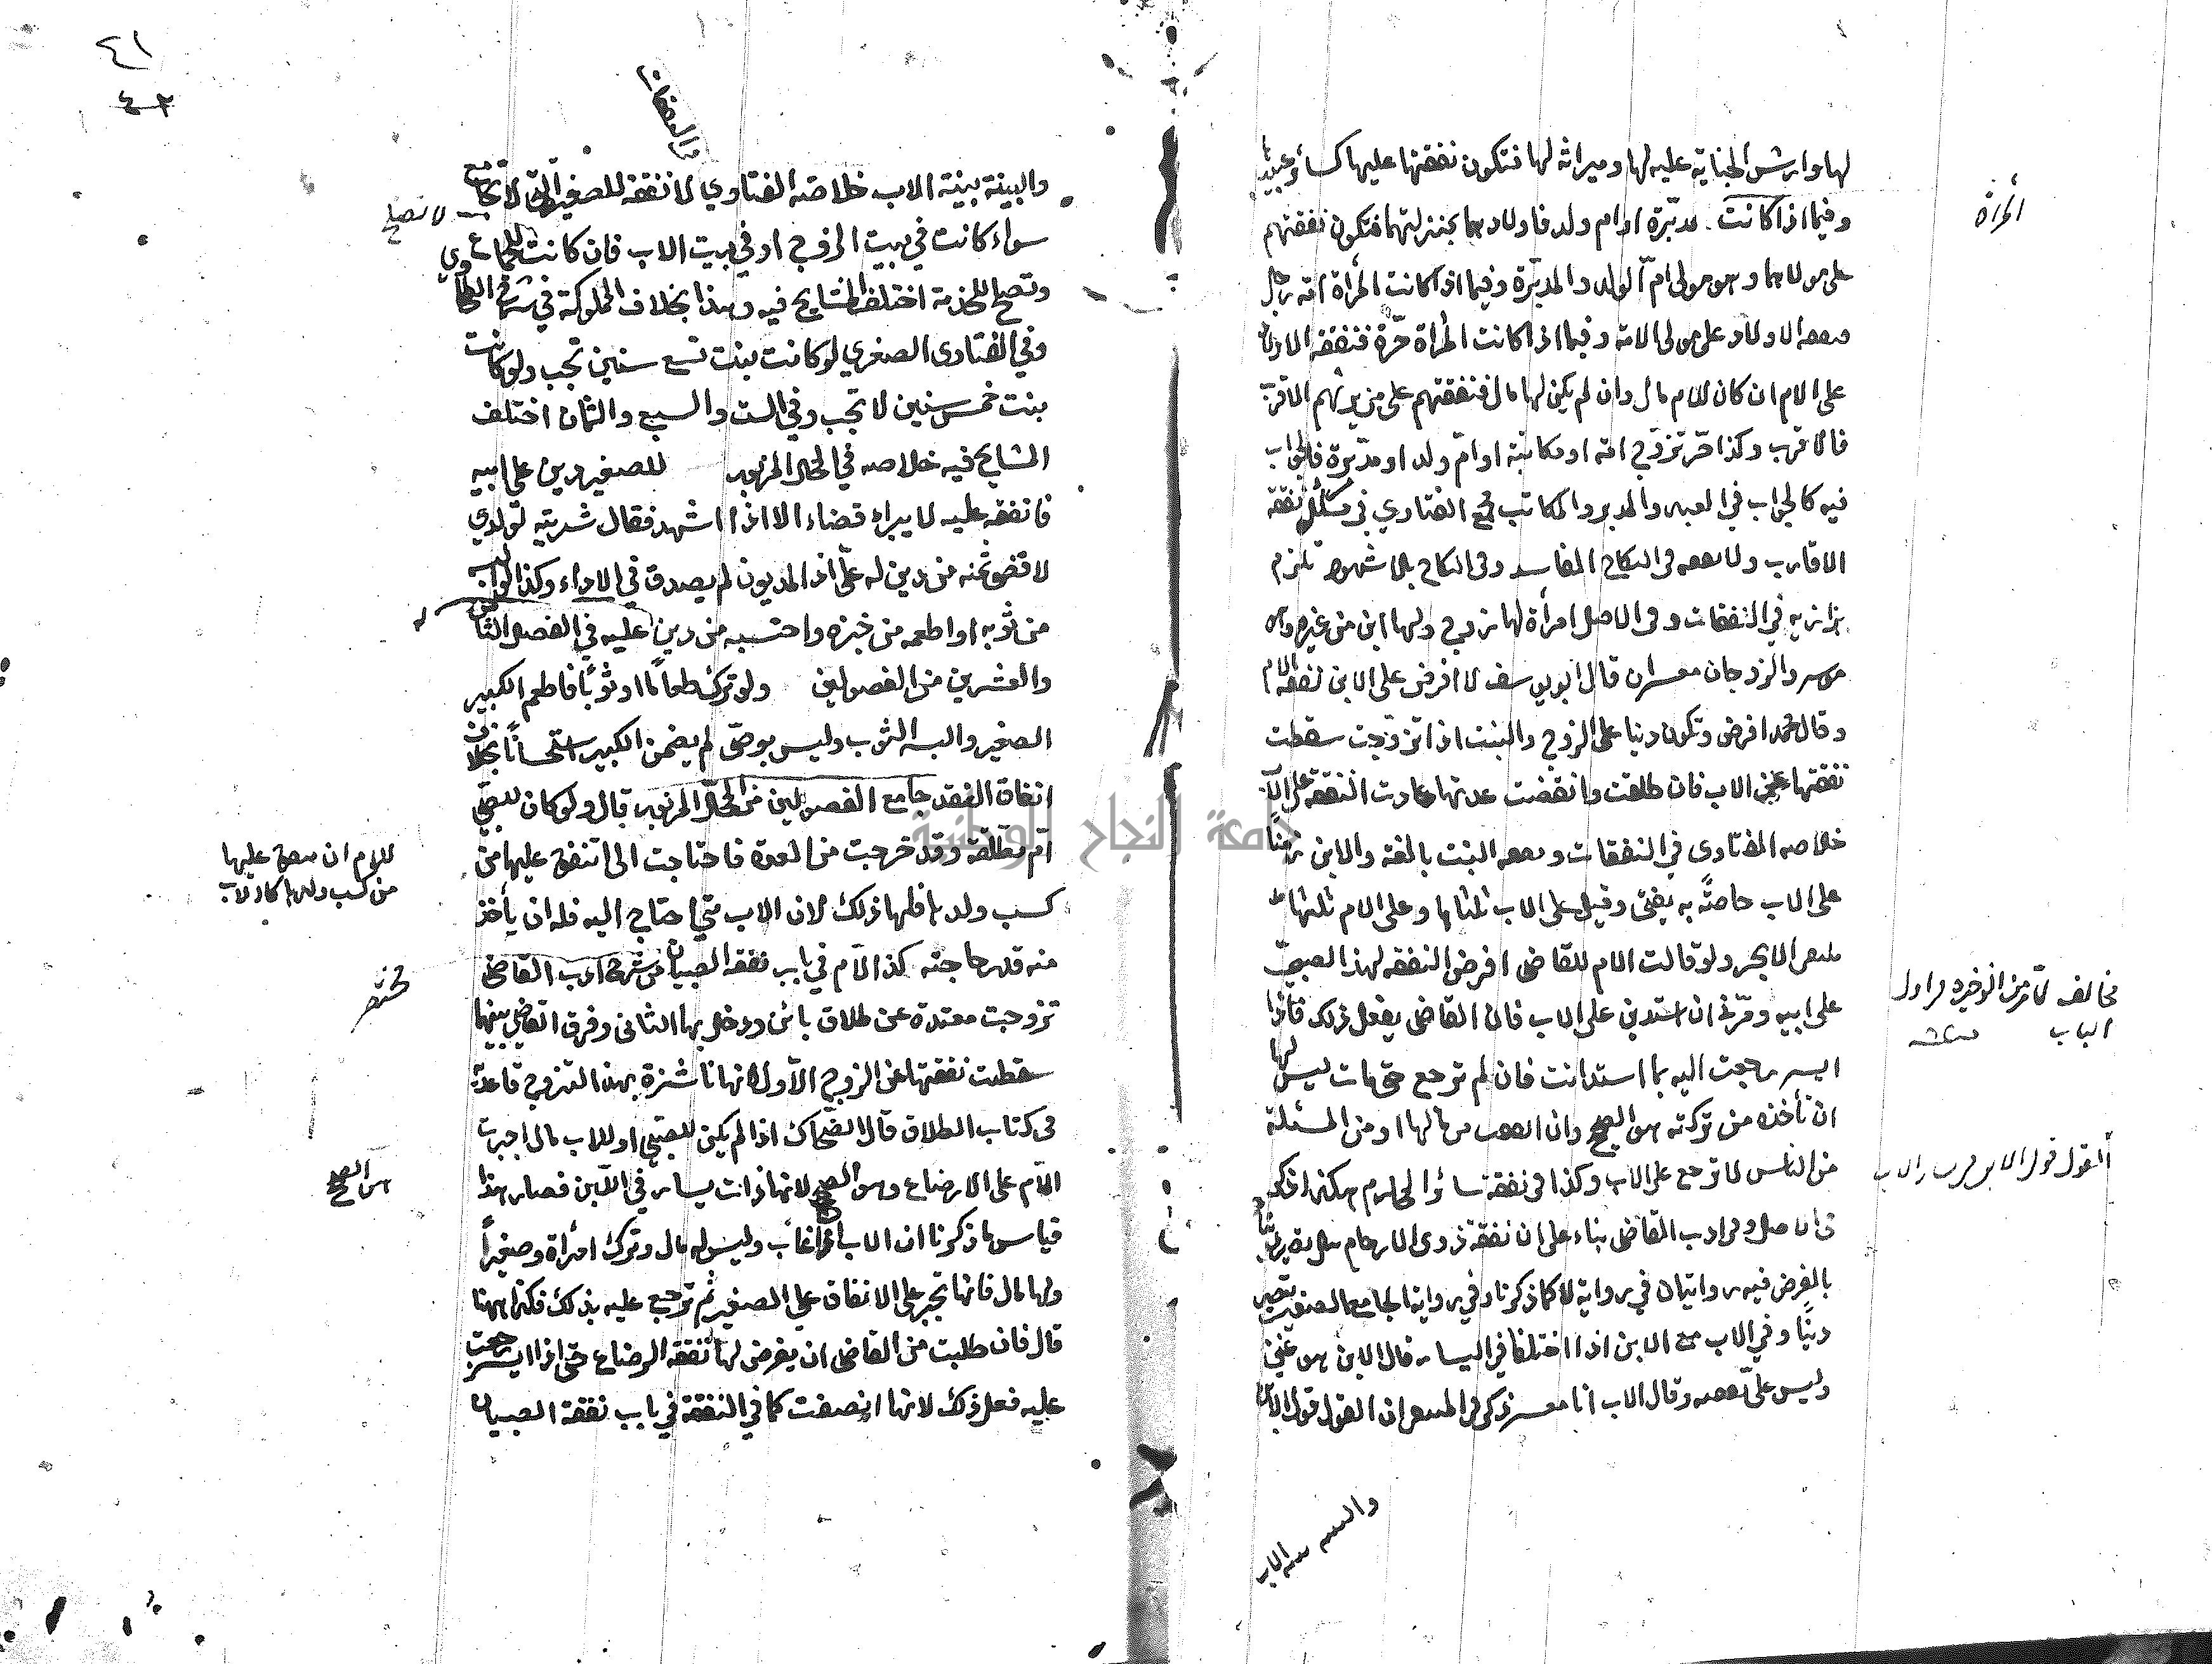 لها وارش الجناية عليه لها وميراثه لها فتكون نفقتها عليها كسائر عبيدها
المرأة
وفيما اذا كانت مدبّرة او ام ولد فاولادهما بمنزلتهما فتكون نفقتهم
على مولاهما وهو مولى امّ الولد والمدبّرة وفيما اذا كانت المرأة امة رجل
ونفقه الاولاد على مولى الامة وفيما اذا كانت المرأة حرّة فنفقه الاولاد
على الام ان كان للام مال وان لم يكن لها مال فنفقتهم على من يرثهم الاقرب
فالاقرب وكذا حر تزوّج امة او مكاتبة او امّ ولد او مدبّرة فالجواب
فيه كالجواب في العبد والمدبر والمكاتب مجمع الفتاوي في مسائل نفقة
الاقارب ولا نفقه فى النكاح الفاسد وفى النكاح بلا شهود تلزم
بزازيه في النفقات وفى الاصل امرأة لها زوج ولها ابن من غيره وهو
موسر والزوجان معسران قال ابو يوسف لا افرض على الابن نفقه الام
وقال محمد افرض وتكون دينا على الزوج والبنت اذا تزوّجت سقطت
نفقتها عن الاب فان طلقت وانقضت عدتها عادت النفقه على الاب
خلاصه الفتاوى في النفقات ونفقه البنت بالغة والابن زمنًا
على الاب خاصّة به يفتى وقيل على الاب ثلثاها وعلى الام ثلثها
ملتقى الابحر ولو قالت الام للقاضى افرض النفقه لهذا الصبيّ
مخالف لما مر من الذخيره في اول
الباب
على ابيه ومرني ان استدين على الاب فان القاضى يفعل ذلك فاذا
ايسر رجعت اليه بما استدانت فان لم ترجع حتى مات ليس لها
ان تأخذه من تركته هو الصحيح وان انفقت من مالها او من المسئلة
القول قول الابن في يسار الاب
من الناس لا ترجع على الاب وكذا فى نفقة سائر المحارم هكذا ذكر
فى الاصل وفى ادب القاضى بناء على ان نفقة ذوى الارحام هل تصير دينًا
بالفرض فيه روايتان في رواية لا كما ذكرنا وفي رواية الجامع الصغير تصير
دينًا وفي الاب مع الابن اذا اختلفا في اليسار فقال الابن هو غني
وليس علىّ نفقته وقال الاب انا معسر ذكر في المنتقى ان القول قول الابن
والبينه بينه الاب
٤١
٤٢
والبينة بينة الاب خلاصه الفتاوي لا نفقه للصغيرة التى لا تجامع
لا تصلح
سواء كانت في بيت الزوج او في بيت الاب فان كانت للجماع
وتصلح للخدمة اختلف المشايخ فيه وهذا بخلاف المملوكة في شرح الطحاوي
وفي الفتاوى الصغري لو كانت بنت تسع سنين تجب ولو كانت
بنت خمس سنين لا تجب وفي الست والسبع والثمان اختلف
المشايخ فيه خلاصه في المحل المزبور للصغير دين على ابيه
فانفقه عليه لا يبراء قضاء الا اذا اشهد فقال شريته لولدي
لاقضي ثمنه من دين له علىّ اذ المديون لم يصدق في الاداء وكذا لو البسه
من ثوبه او اطعمه من خبزه واحتسبه من دين عليه في الفصل الثامن
له
والعشرين من الفصولين ولو ترك طعامًا او ثوبًا فاطعم الكبير
الصغير والبسه الثوب وليس بوصىّ لم يضمن الكبير استحسانًا بخلاف
انفاق النقد جامع الفصولين من المحل المزبور قال ولو كان للصبيّ
للام ان تنفق عليها
من كسب ولدها كالاب
امّ مطلّقة وقد خرجت من العدة فاحتاجت الى ان تنفق عليها من
كسب ولدها فلها ذلك لان الاب متى احتاج اليه فله ان يأخذ
منه قدر حاجته كذا الام في باب نفقه الصبيان من شرح ادب القاضى
تزوجت معتدة عن طلاق بائن ودخل بها الثانى وفرق القاضى بينهما
سقطت نفقتها عن الزوج الاول لانها ناشزة بهذا التزوج قاعديّه
فى كتاب الطلاق قال الضحّاك اذا لم يكن للصبي او للاب مال اجبرت
هو الصحيح
الام على الارضاع وهو الصحيح لانها ذات يسار في اللبن فصار هذا
قياس ما ذكرنا ان الاب اذا غاب وليس له مال وترك امرأة وصغيرًا
ولها مال فانها تجبر على الانفاق على الصغير ثم ترجع عليه بذلك فكذا ههنا
قال فان طلبت من القاضى ان يفرض لها نفقه الرضاع حتى اذا ايسر رجعت
عليه فعل ذلك لانها انصفت كما في النفقة في باب نفقة الصبيان
جامعة النجاح الوطنية